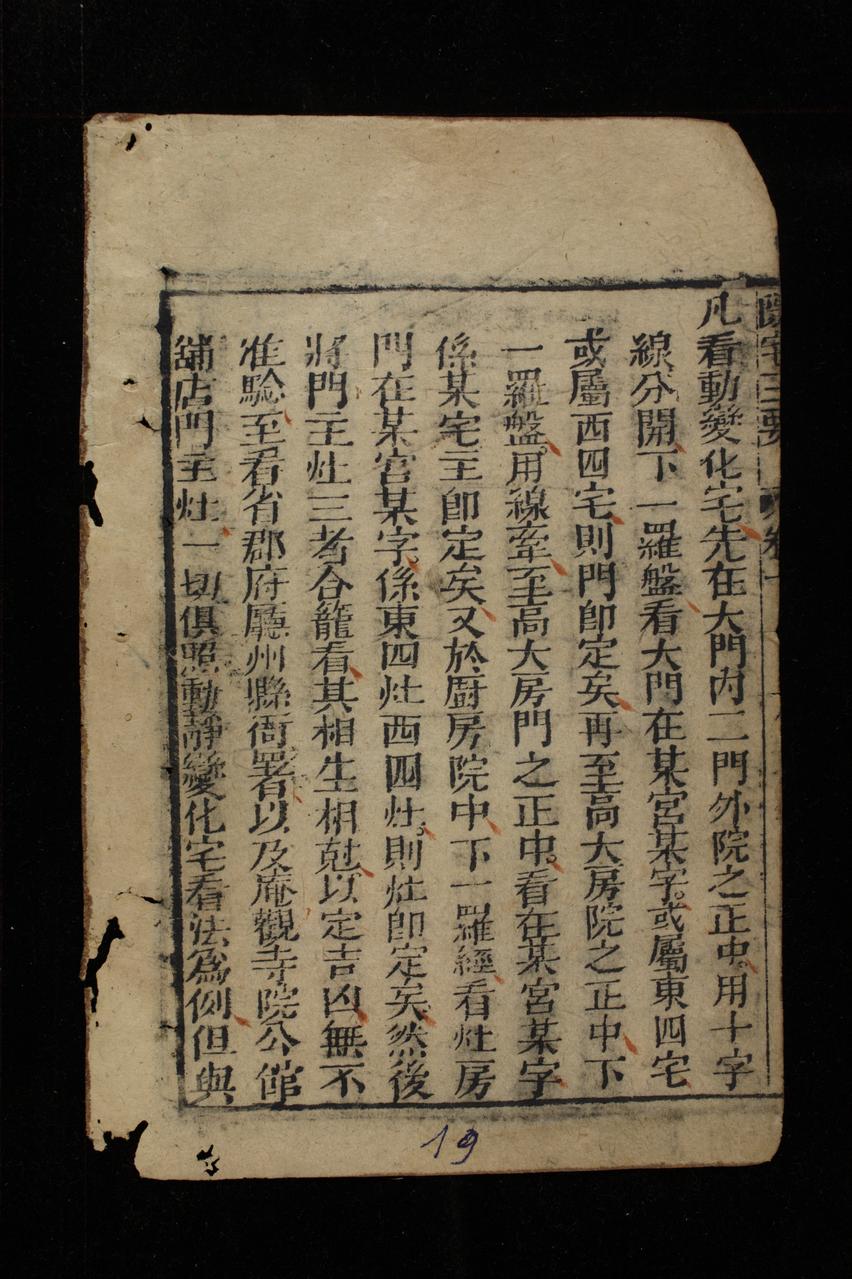 陽宅三要 卷一
凡看動變化宅先在大門內二門外院之正中用十字
線分開下一羅盤看大門在某宮某字或屬東四宅
或屬西四宅則門即定矣再至高大房院之正中下
一羅盤用線牽至高大房門之正中看在某宮某字
係某宅主即定矣又於廚房院中下一羅經看灶房
門在某宮某字係東四灶西四灶則灶即定矣然後
將門主灶三者合籠看其相生相尅以定吉凶無不
准騐至看省郡府廳州縣衙署以及庵觀寺院公館
舖店門主灶一切俱照動靜變化宅看法為例但與
19